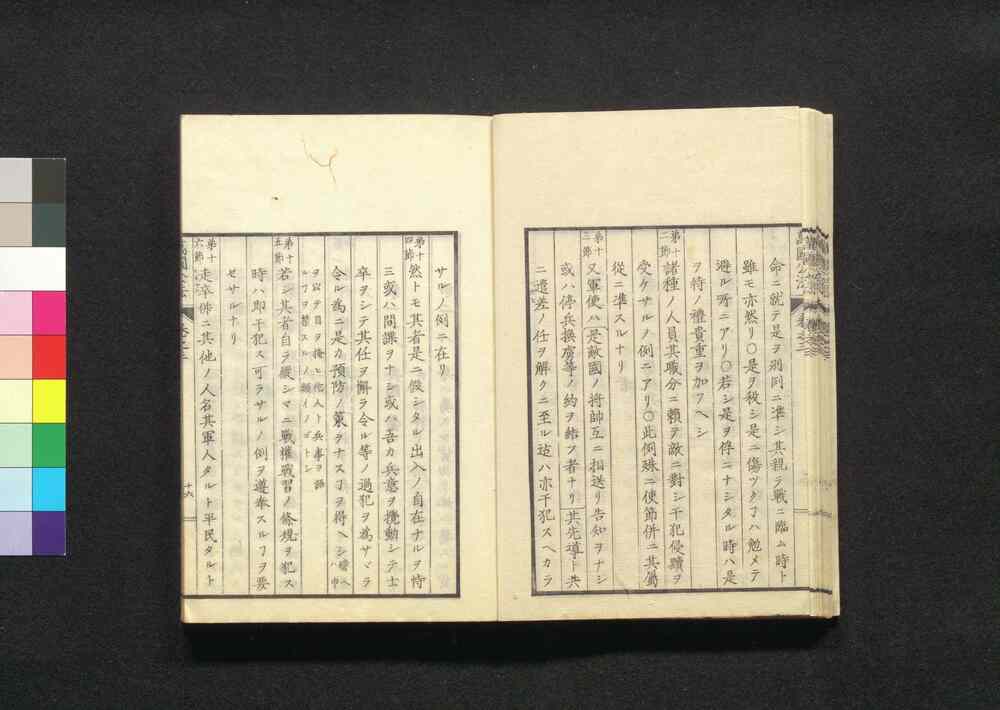 命ニ就テ是ヲ別同ニ準シ其親ラ戦ニ臨ム時ト
雖モ亦然リ〇是ヲ殺シ是ニ傷ツクヿハ勉メテ
避ル所ニアリ〇若シ是ヲ俘ニナシタル時ハ是
ヲ待ノ禮貴重ヲ加フヘシ
第十二節 諸種ノ人員其職分ニ頼ヲ敵ニ對シ干犯侵蹟ヲ
受ケサルノ例ニアリ〇此例殊ニ使節併ニ其属
從ニ準スルナリ
第十三節 又軍使ハ是敵國ノ将帥互ニ相送リ告知ヲナシ
或ハ停兵換虜等ノ約ヲ結フ者ナリ其先導ト共
ニ遣差ノ任ヲ解クニ至ル迠ハ亦干犯スヘカラ
サルノ例ニ在リ
第十四節 然トモ其者是ニ假シタル出入ノ自在ナルヲ恃
ミ或ハ間諜ヲナシ或ハ吾カ兵意ヲ攪動シテ士
卒ヲシテ其任ヲ懈ラ令ル等ノ過犯ヲ為サヾラ
令ル為ニ是カ預防ノ策ヲナスヿヲ得ヘシ
ヲ以テ目ヲ掩ヒ他人ト兵事ヲ語
ルヿヲ禁スルノ類イノゴトシ
第十五節 若シ其者自ラ縦シマニ戦權戦習ノ條規ヲ犯ス
時ハ即干犯ス可ラサルノ例ヲ遵奉スルヿヲ要
セサルナリ
第十六節 走卒併ニ其他ノ人名其軍人タルト平民タルト
十六